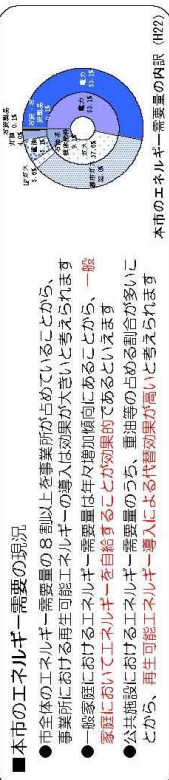 ■本市のエネルギー需要の現況
●市全体のエネルギー需要量の8割以上を事業所が占めていることから、
事業所における再生可能エネルギーの導入は効果が大きいと考えられます
●一般家庭におけるエネルギー需要量は年々増加傾向にあることから、一般
家庭においてエネルギーを自給することが効果的であるといえます
●公共施設におけるエネルギー需要量のうち、重油等の占める割合が多いこ
とから、再生可能エネルギー導入による代替効果が高いと考えられます
電力
53.1%
電力
53.1%
ガス
37.6%
都市ガス
32.0%
LPガス
5.6%
9.1%
本市のエネルギー需要量の内訳（H22）